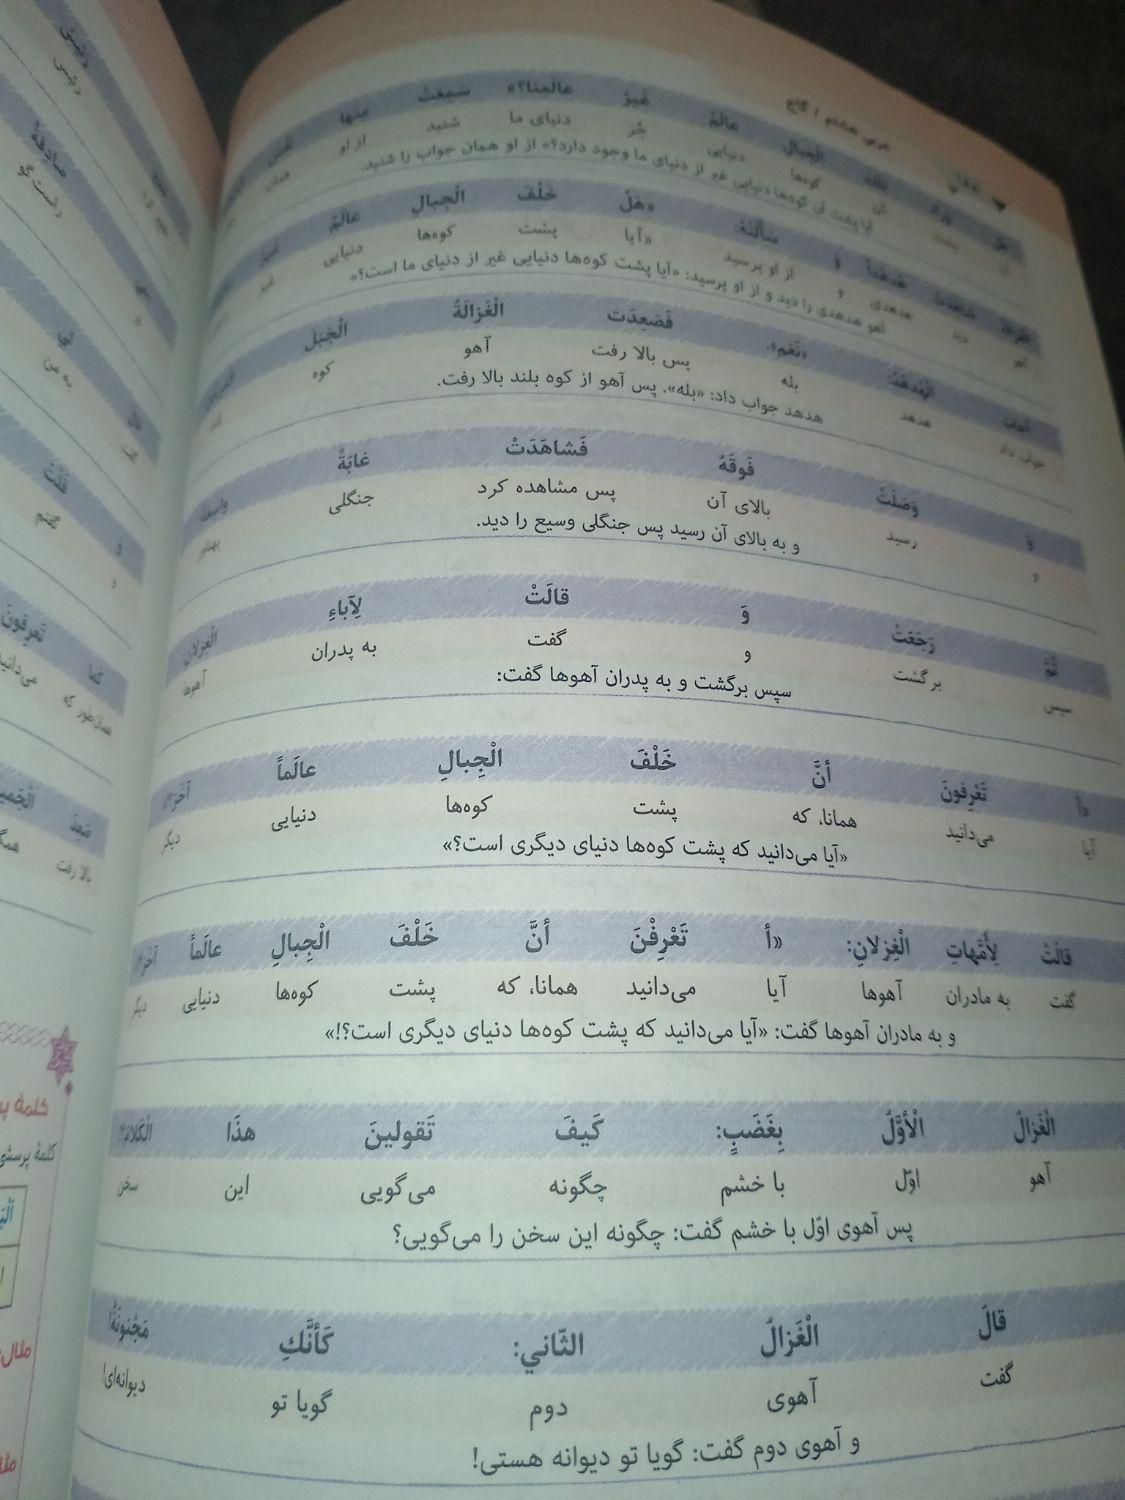 عربی هشتم / گاج
الْجِبالِ عالَمٌ غَیرُ عالَمِنا؟» سَمِعَتْ مِنها
آن کوه‌ها دنیایی جُز دنیای ما شنید از او همان
آیا پشت آن کوه‌ها دنیایی غیر از دنیای ما وجود دارد؟» از او همان جواب را شنید.
هُدهُداً وَ سَأَلَتْهُ: «هَلْ خَلْفَ الْجِبالِ عالَمٌ غیرُ
آهو دید هدهدی و از او پرسید «آیا پشت کوه‌ها دنیایی غیر
آهو هدهدی را دید و از او پرسید: «آیا پشت کوه‌ها دنیایی غیر از دنیای ما است؟»
الْهُدهُدُ: «نَعَم». فَصَعِدَت الْغَزالَةُ الْجَبَلَ
جواب داد هدهد بله پس بالا رفت آهو کوه
هدهد جواب داد: «بله». پس آهو از کوه بلند بالا رفت.
وَ وَصَلَتْ فَوقَهُ فَشاهَدَتْ غابَةً
و رسید بالای آن پس مشاهده کرد جنگلی پهناور
و به بالای آن رسید پس جنگلی وسیع را دید.
ثُمَّ رَجَعَتْ وَ قالَتْ لِآباءِ الْغِزلانِ
سپس برگشت و گفت به پدران آهوها
سپس برگشت و به پدران آهوها گفت:
«أ تَعْرِفونَ أنَّ خَلْفَ الْجِبالِ عالَماً آخَرَ؟!»
آیا می‌دانید همانا، که پشت کوه‌ها دنیایی دیگر
«آیا می‌دانید که پشت کوه‌ها دنیای دیگری است؟»
قالَتْ لِأُمَّهاتِ الْغِزلانِ: «أ تَعْرِفْنَ أنَّ خَلْفَ الْجِبالِ عالَماً آخَرَ؟!»
گفت به مادران آهوها آیا می‌دانید همانا، که پشت کوه‌ها دنیایی دیگر
و به مادران آهوها گفت: «آیا می‌دانید که پشت کوه‌ها دنیای دیگری است؟!»
الْغَزالُ الْأوَّلُ بِغَضَبٍ: کَیفَ تَقولینَ هذَا الْکَلامَ؟!
آهو اوّل با خشم چگونه می‌گویی این سخن
پس آهوی اوّل با خشم گفت: چگونه این سخن را می‌گویی؟
قالَ الْغَزالُ الثّاني: کَأنَّكِ مَجْنونَةٌ!
گفت آهوی دوم گویا تو دیوانه‌ای!
و آهوی دوم گفت: گویا تو دیوانه هستی!
صادِقَةٌ
راستگو
لي
به من
قُلْتُ
گفتم
وَ
و
کَما تَعرِفونَ
همان‌طور که می‌دانید
صَعِدَ
بالا رفت
مثال: